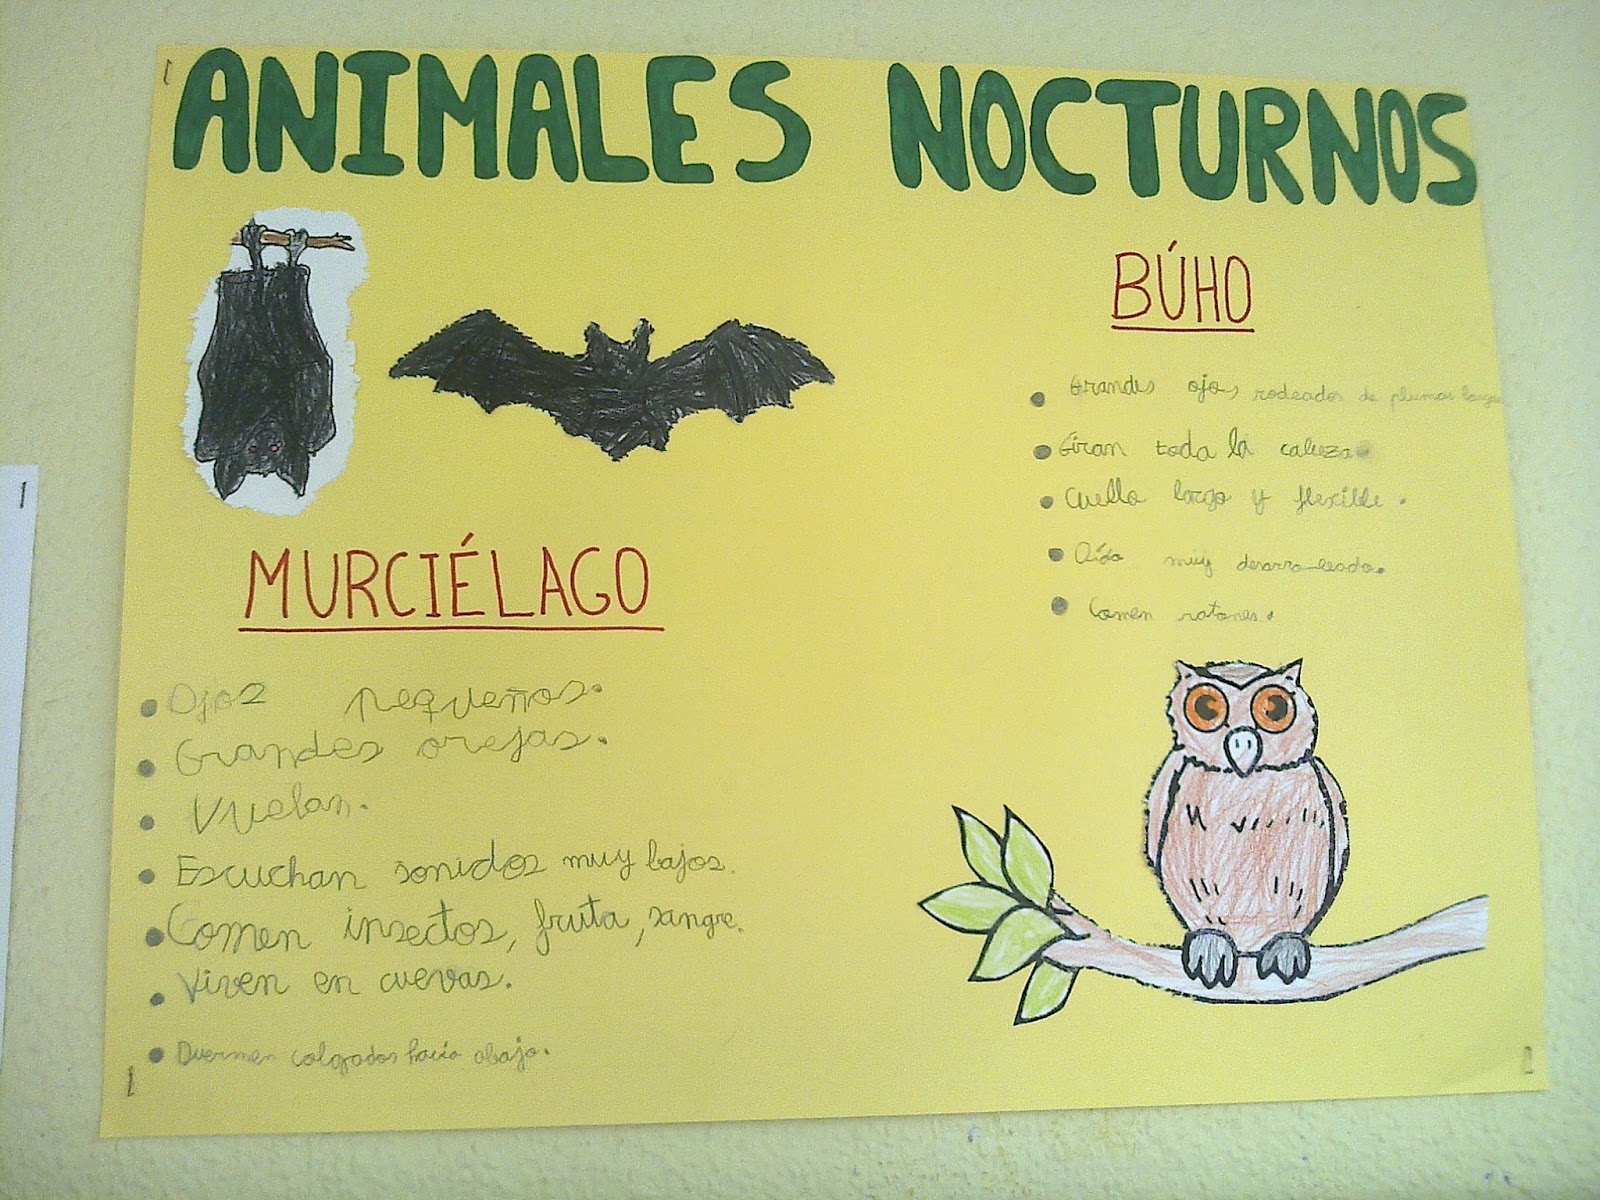 ANIMALES NOCTURNOS
MURCIÉLAGO
Ojos pequeños.
Grandes orejas.
Vuelan.
Escuchan sonidos muy bajos.
Comen insectos, fruta, sangre.
Viven en cuevas.
Duermen colgados hacia abajo.
BÚHO
Grandes ojos rodeados de plumas largas
Giran toda la cabeza
Cuello largo y flexible.
Oído muy desarrollado.
Comen ratones.